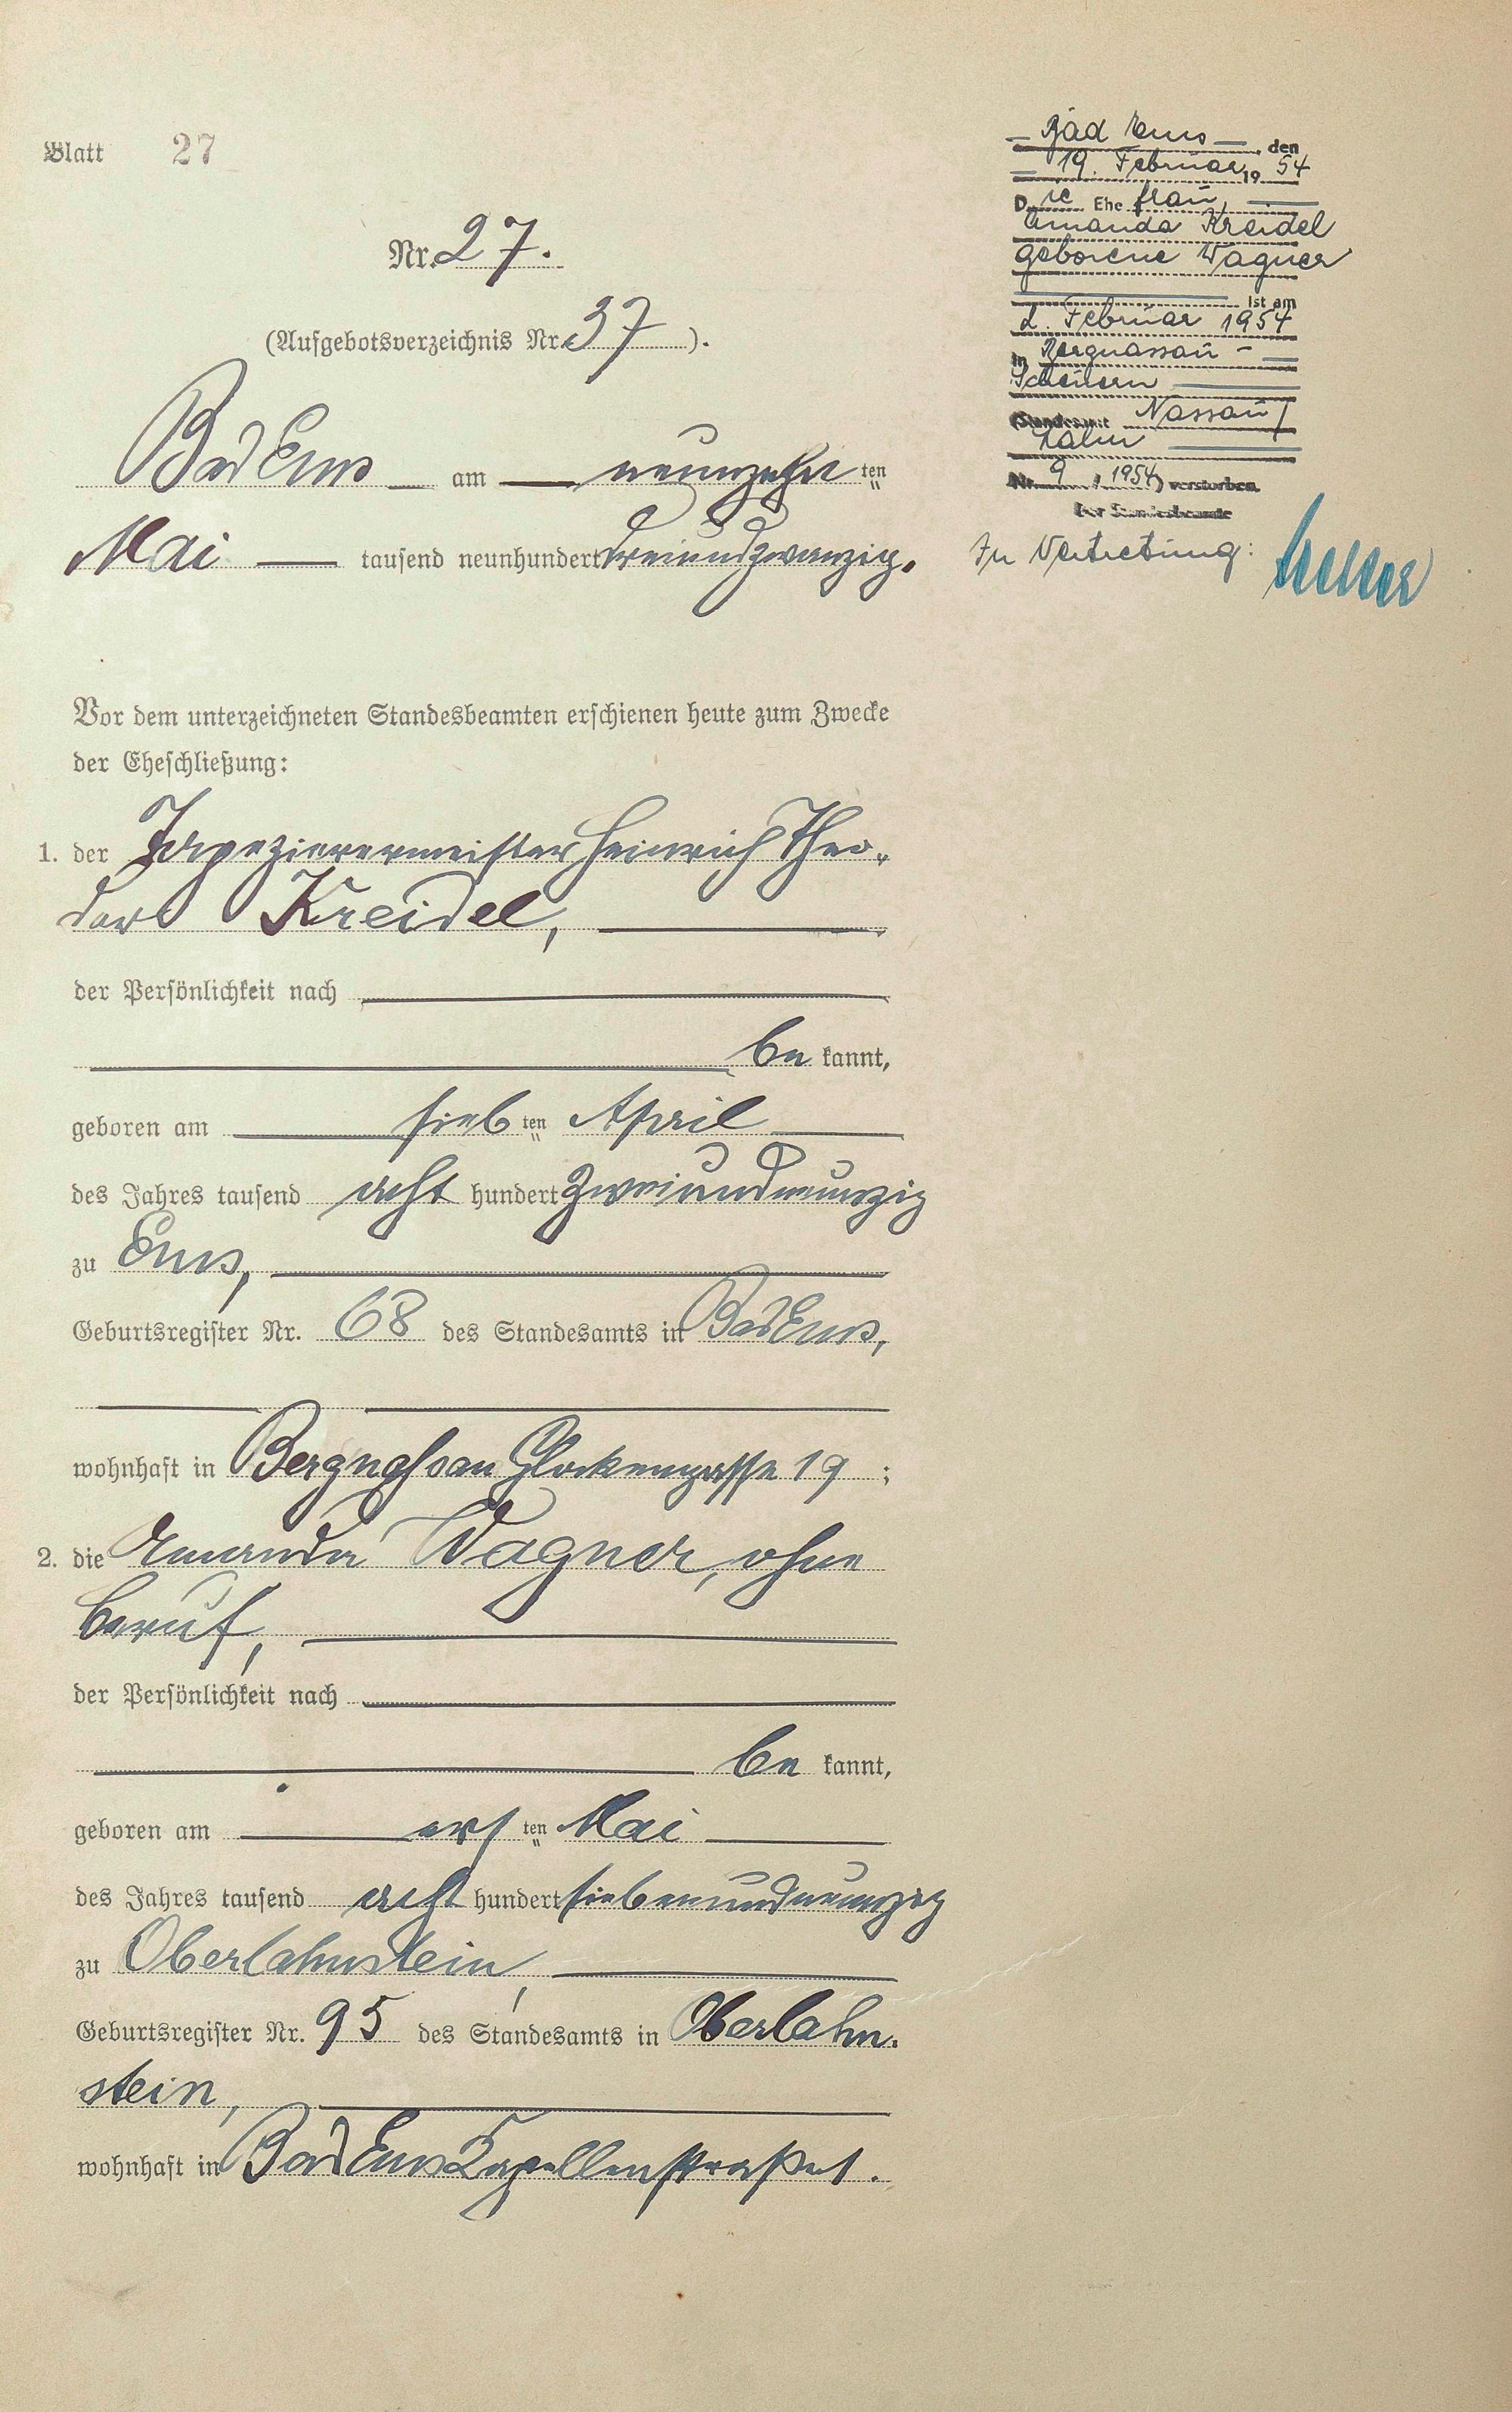 Blatt 27
Nr. 27.
(Aufgebotsverzeichnis Nr. 37).
Bad Ems am neunzehnten
Mai tausend neunhundert dreiundzwanzig.
Vor dem unterzeichneten Standesbeamten erschienen heute zum Zwecke
der Eheschließung:
1. der Tapezierermeister Heinrich Theo-
dor Kreidel,
der Persönlichkeit nach
be kannt,
geboren am siebten April
des Jahres tausend acht hundert zweiundneunzig
zu Ems,
Geburtsregister Nr. 68 des Standesamts in Bad Ems,
wohnhaft in Bergnassau Glockengasse 19;
2. die Amanda Wagner, ohne
Beruf,
der Persönlichkeit nach
be kannt,
geboren am ersten Mai
des Jahres tausend acht hundert siebenundneunzig
zu Oberlahnstein,
Geburtsregister Nr. 95 des Standesamts in Oberlahn-
stein,
wohnhaft in Bad Ems Kapellenstraße 1.
Bad Ems, den
19. Februar 19 54
Die Ehe frau,
Amanda Kreidel
geborene Wagner
ist am
2. Februar 1954
in Bergnassau-
Scheuern
(Standesamt Nassau/
Lahn
Nr. 9, 1954) verstorben.
Der Standesbeamte
In Vertretung: